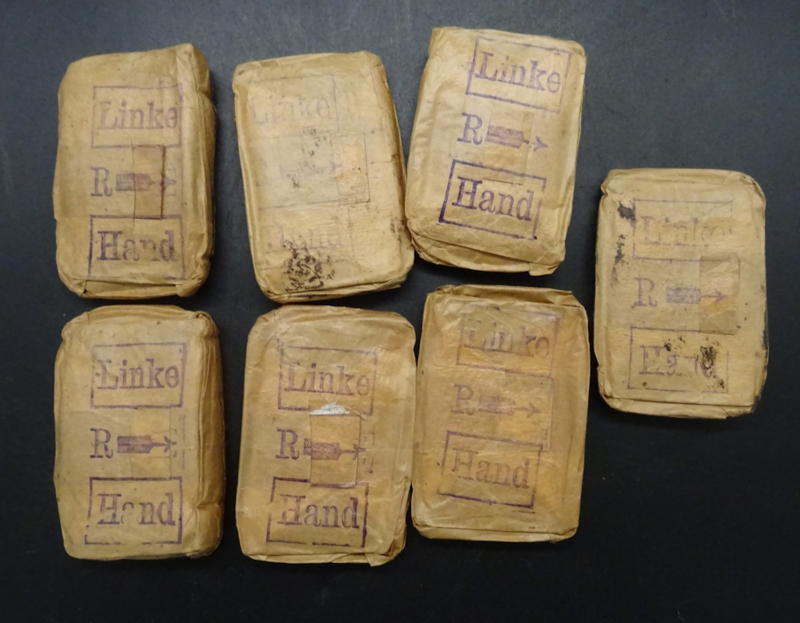 Linke
R
Hand
Linke
Hand
Linke
R
Hand
Linke
R
Hand
Linke
R
Hand
Linke
R
Hand
Linke
R
Hand